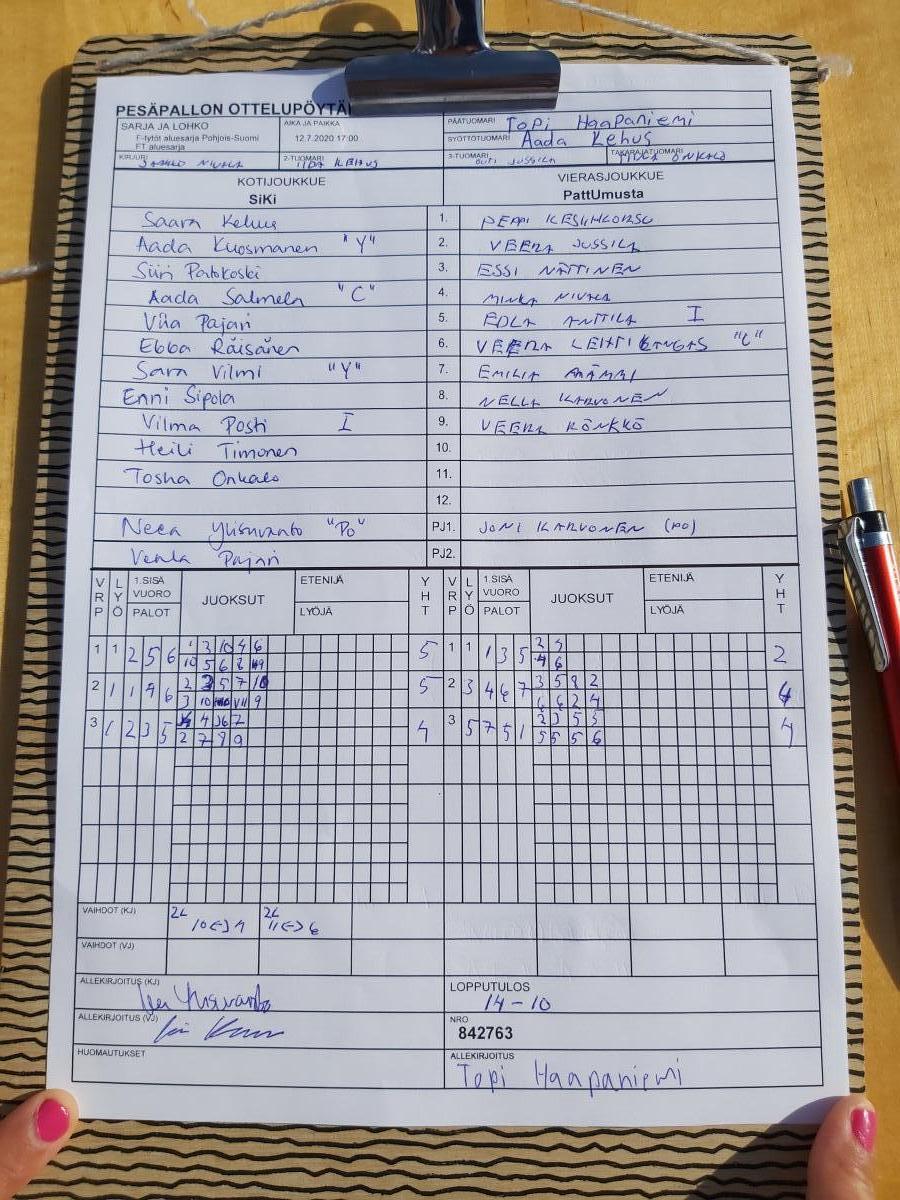 PESÄPALLON OTTELUPÖYTÄ
SARJA JA LOHKO
F-tytöt aluesarja Pohjois-Suomi
FT aluesarja
AIKA JA PAIKKA
12.7.2020 17:00
PÄÄTUOMARI Topi Haapaniemi
SYÖTTÖTUOMARI Aada Kehus
KIRJURI NIVALA
2-TUOMARI IIDA KEHUS
3-TUOMARI OUTI JUSSILA
TAKARAJATUOMARI ONKALO
KOTIJOUKKUE
SiKi
VIERASJOUKKUE
PattUmusta
Saara Kehus 1. PEPPI
Aada Kuosmanen "Y" 2. VEERA JUSSILA
Siiri 3. ESSI NÄTTINEN
Aada Salmela "C" 4. MINKA NIVALA
Viia Pajari 5. EDLA ANTTILA I
Ebba Räisänen 6. VEERA LEHTIKANGAS "C"
Sara Vilmi "Y" 7. EMILIA
Enni Sipola 8. NELLA KARVONEN
Vilma Posti I 9. VEERA RÖNKKÖ
Heili Timonen 10.
Tosha Onkalo 11.
12.
Neea Ylisuvanto "PO" PJ1. JONI KARVONEN (PO)
Venla Pajari PJ2.
VRP LYÖ 1.SISÄ VUORO PALOT JUOKSUT ETENIJÄ LYÖJÄ YHT VRP LYÖ 1.SISÄ VUORO PALOT JUOKSUT ETENIJÄ LYÖJÄ YHT
1 1 2 5 6 1 3 10 4 6 5 1 1 1 3 5
10 5 6 8 2
2 1 1 4 6 5 7 10 5 2 3 4 6 7 3 5 8 2
3 10 9 6 6 2 4 4
3 1 2 3 5 4 7 4 3 5 7 5 1 2 3 5 5
2 7 9 9 5 5 5 6 4
VAIHDOT (KJ) 2L 10<->4 2L 11<->6
VAIHDOT (VJ)
ALLEKIRJOITUS (KJ)
LOPPUTULOS
14-10
ALLEKIRJOITUS (VJ)
NRO
842763
HUOMAUTUKSET
ALLEKIRJOITUS
Topi Haapaniemi